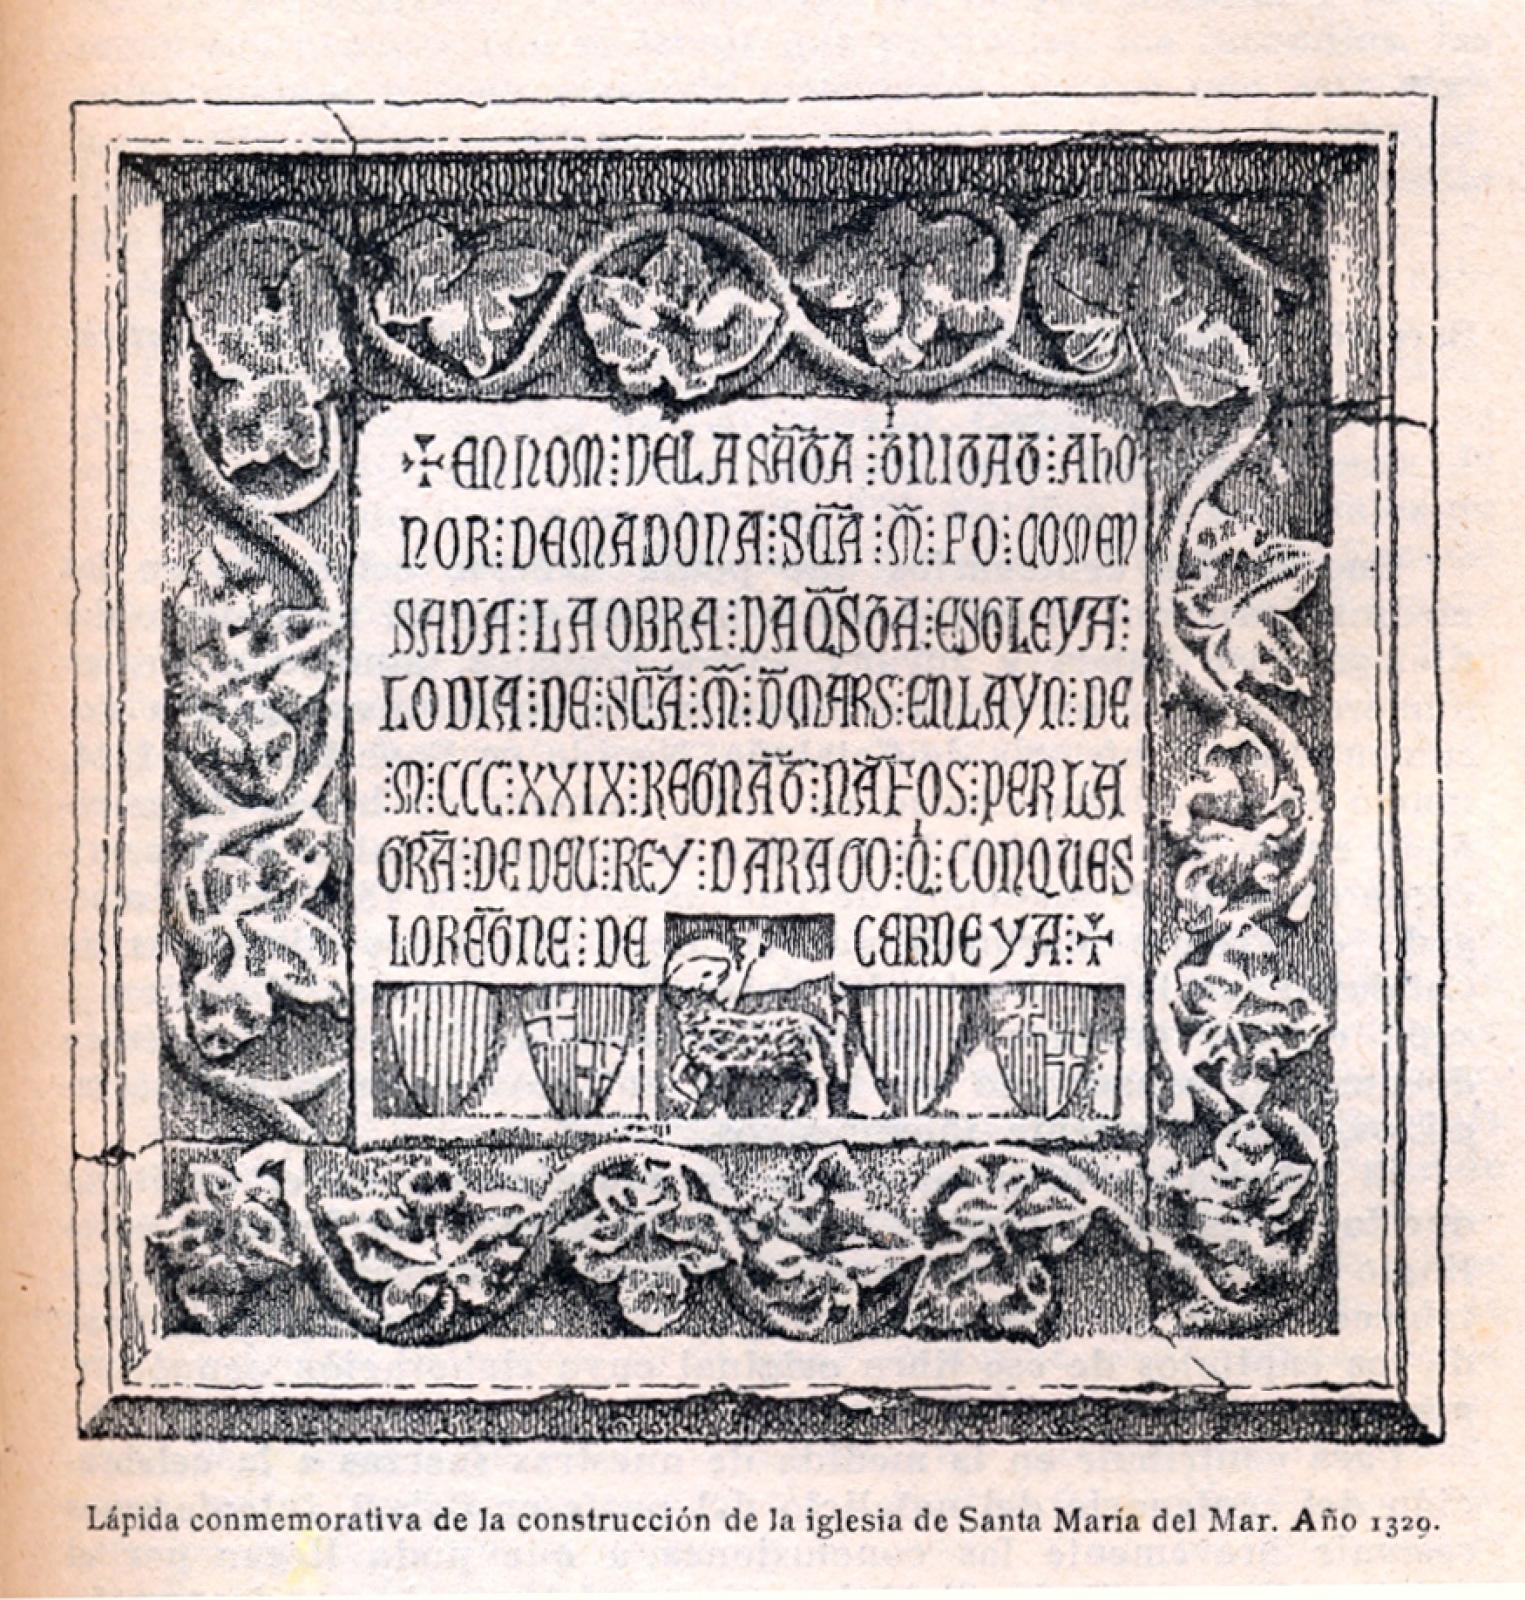 ✠ EN NOM ⁝ DE LA SĀTA ⁝ TNITAT ⁝ A HO
NOR ⁝ DE MADONA ⁝ SCĀ ⁝ M̄ ⁝ FO ⁝ COMEN
SADA ⁝ LA OBRA ⁝ DAQ̄STA ⁝ ESGLEYA ⁝
LO DIA ⁝ DE ⁝ SCĀ ⁝ M̄ ⁝ D̄ MARS ⁝ EN LAYN ⁝ DE
⁝ M ⁝ CCC ⁝ XXIX ⁝ REGNĀT ⁝ NĀFOS ⁝ PER LA
GRĀ ⁝ DE DEU ⁝ REY ⁝ DARAGO ⁝ Q ⁝ CONQUES
LO REGNE ⁝ DE CERDEYA ⁝ ✠
Lápida conmemorativa de la construcción de la iglesia de Santa María del Mar. Año 1329.